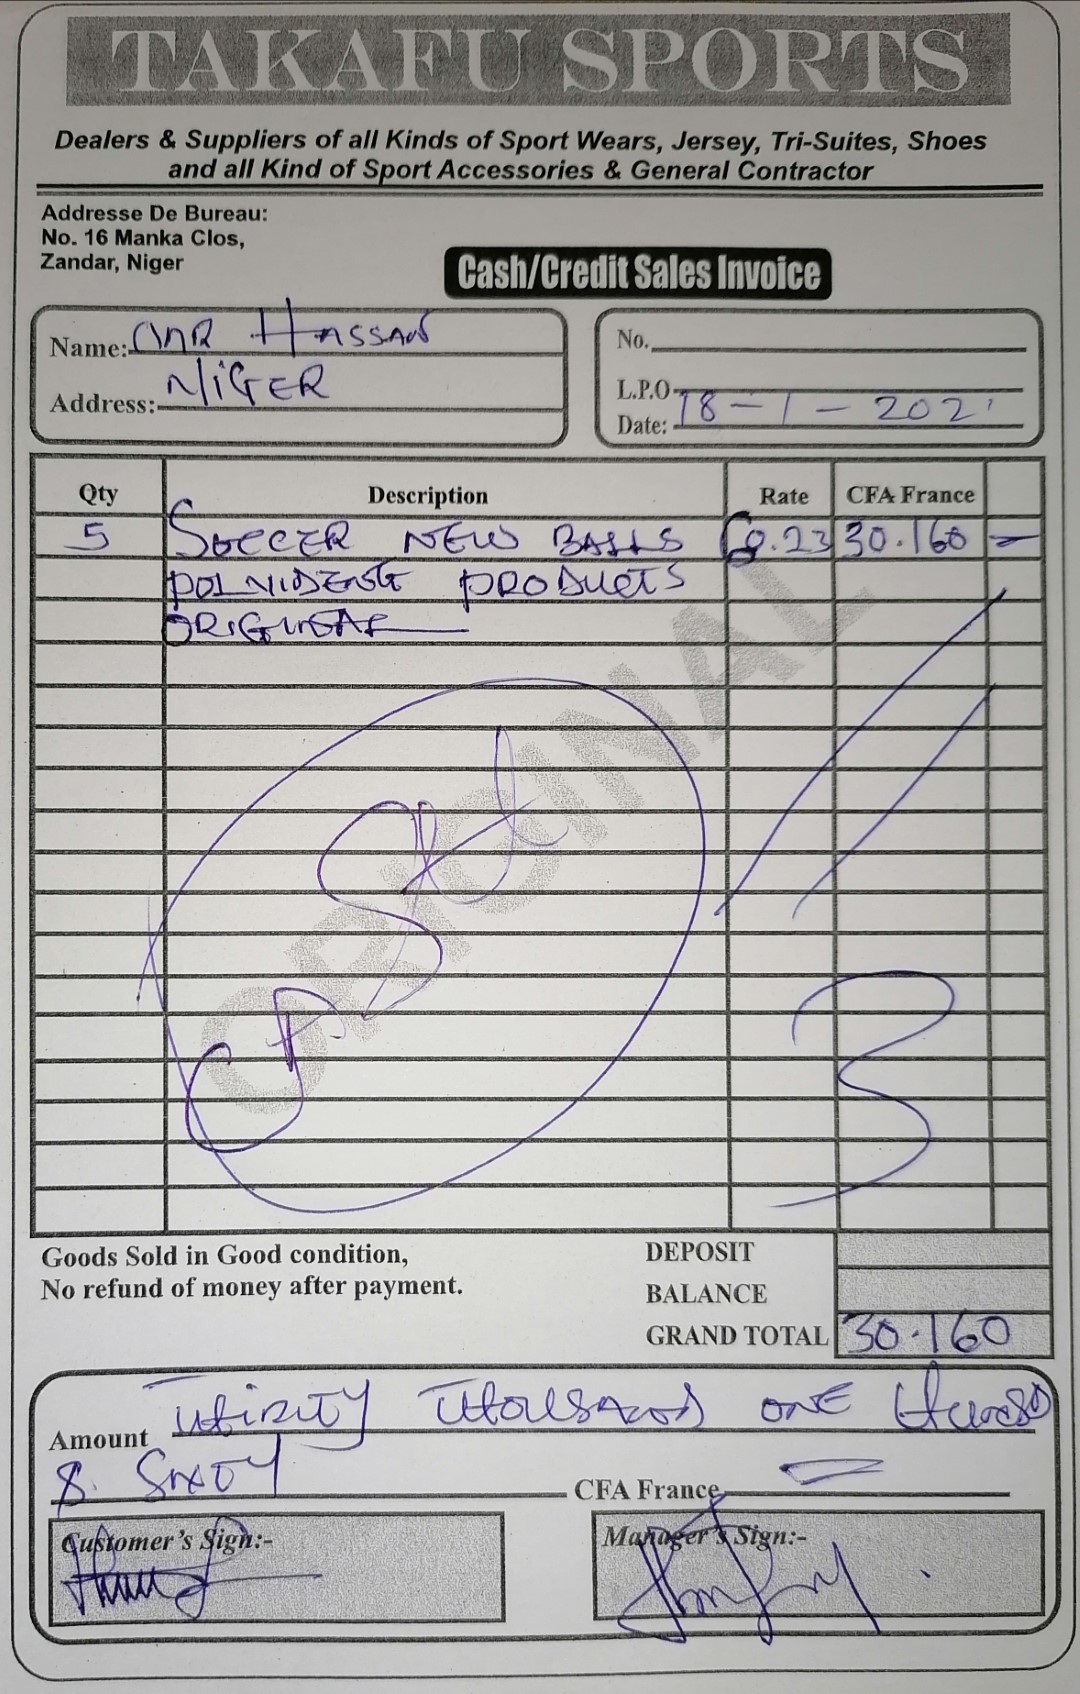 TAKAFU SPORTS
Dealers & Suppliers of all Kinds of Sport Wears, Jersey, Tri-Suites, Shoes
and all Kind of Sport Accessories & General Contractor
Addresse De Bureau:
No. 16 Manka Clos,
Zandar, Niger
Cash/Credit Sales Invoice
Name: MR HASSAN
Address: NIGER
No.
L.P.O
Date: 18-1-202
Qty Description Rate CFA France
5 SOCCER NEW BALLS .23 30.160
PRODUCTS
ORIGINAL
CASH
DEPOSIT
BALANCE
GRAND TOTAL 30.160
Goods Sold in Good condition,
No refund of money after payment.
Amount THIRTY THOUSAND ONE
& SIXTY CFA France
Customer's Sign:-
Manager's Sign:-